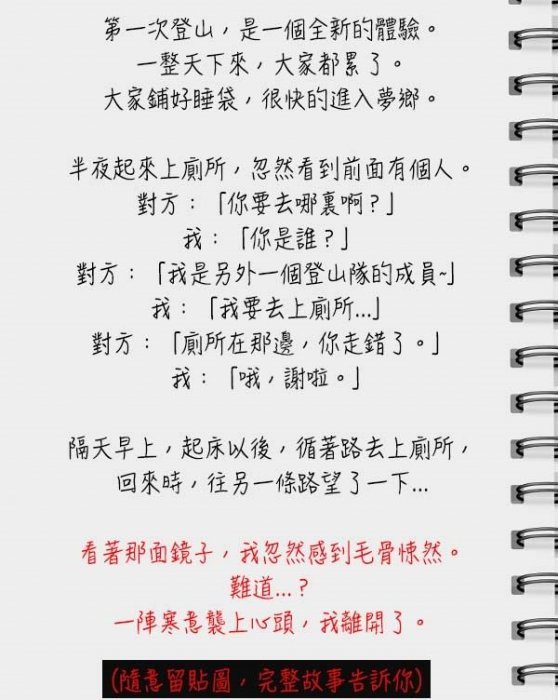 第一次登山，是一個全新的體驗。
一整天下來，大家都累了。
大家鋪好睡袋，很快的進入夢鄉。
半夜起來上廁所，忽然看到前面有個人。
對方：「你要去哪裏啊？」
我：「你是誰？」
對方：「我是另外一個登山隊的成員~」
我：「我要去上廁所...」
對方：「廁所在那邊，你走錯了。」
我：「哦，謝啦。」
隔天早上，起床以後，循著路去上廁所，
回來時，往另一條路望了一下...
看著那面鏡子，我忽然感到毛骨悚然。
難道...？
一陣寒意襲上心頭，我離開了。
(隨意留貼圖，完整故事告訴你)